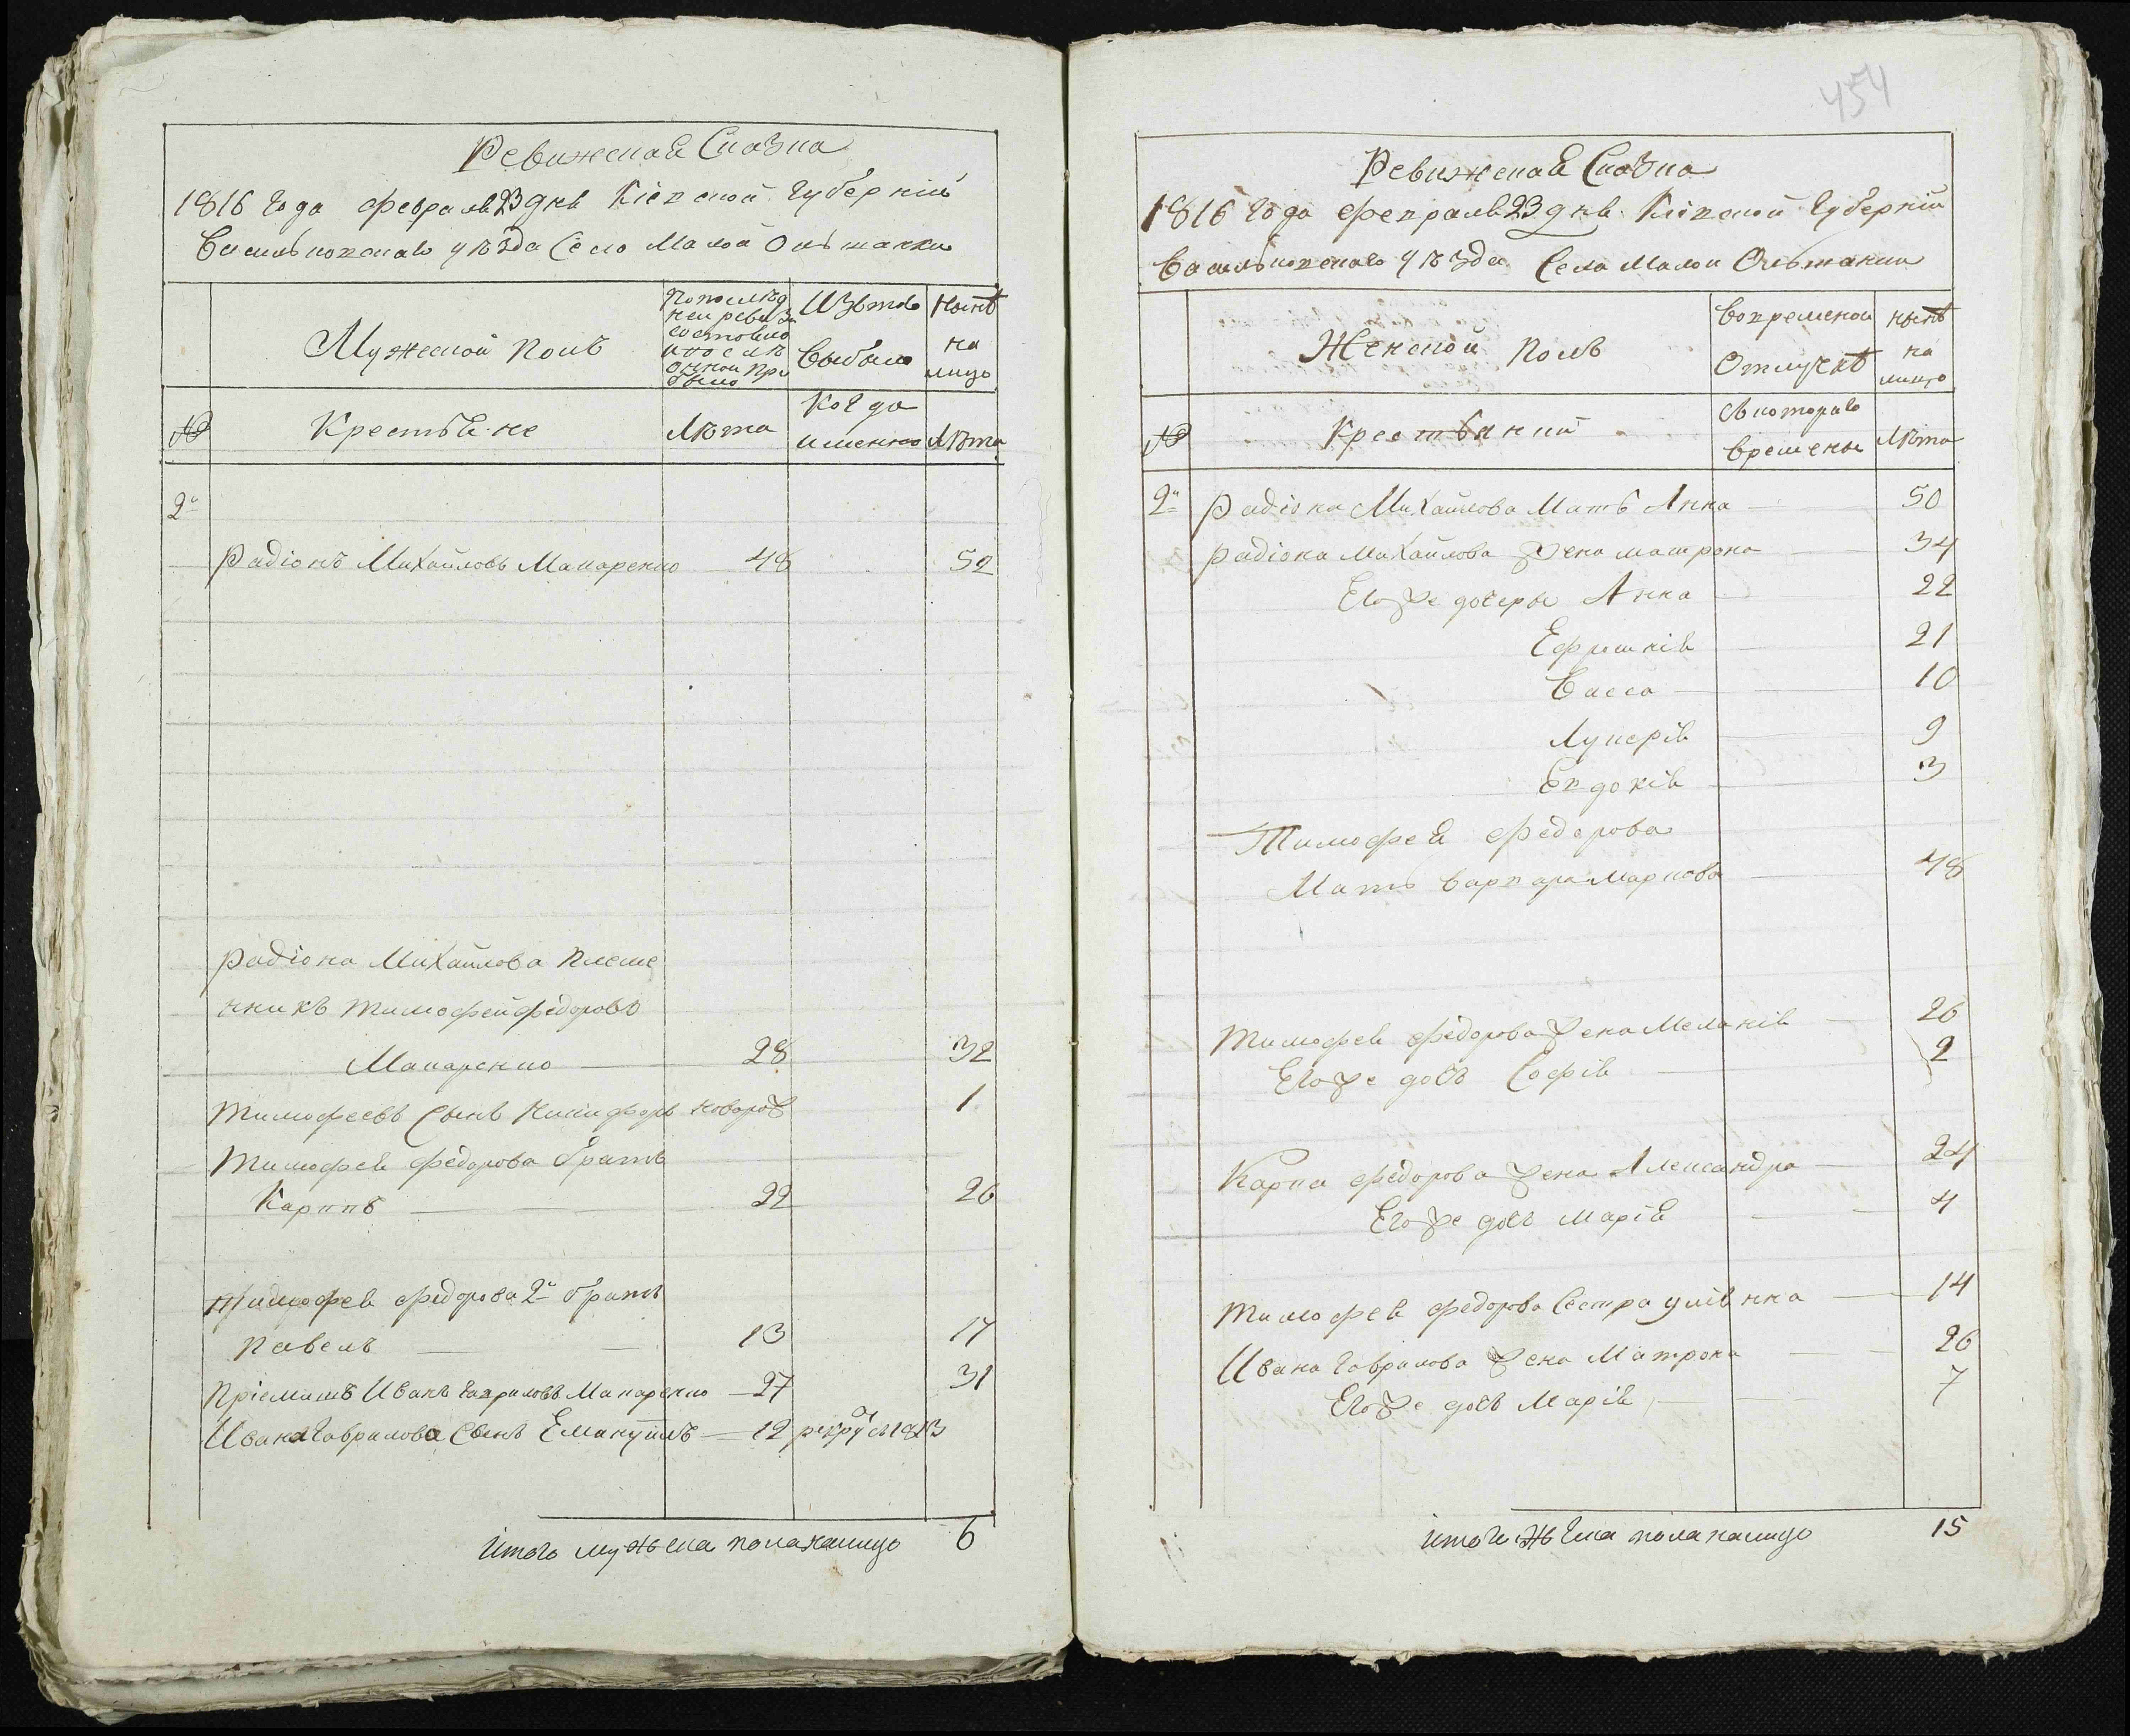 Ревижская Сказка
1816 Года февраля 23 дня Кіевской Губерніи
Васильковскаго уѣзда Село Малой Ольшанки
Мужеской полъ
По послѣд
ней ревизи
состояло
и послѣ
оной при
было
Изъ того
выбыло
Нынѣ
на
лицо
№
Крестьяне
Лѣта
Когда
именно
Лѣта
2й
Радіонъ Михайловъ Макаренко 48 52
Радіона Михайлова племе
нникъ Тимофей федоровъ
Макаренко 28 32
Тимофеевъ Сынъ Никифоръ новорож 1
Тимофея федорова братъ
Карпъ 22 26
Тимофея федорова 2й братъ
Павелъ 13 17
Пріемышъ Иванъ Гавриловъ Макаренко 27 31
Ивана Гаврилова Сынъ Емануилъ 12 1813
Итого мужеска пола налицо 6
454
Ревижская Сказка
1816 Года февраля 23 дня Кіевской Губерніи
Васильковскаго уѣзда Села Малой Ольшанки
Женской полъ
Во временой
Отлучкѣ
нынѣ
на
лицо
№
Крестьянкий
съ котораго
времены
Лѣта
2й Радіона Михайлова Мать Анна 50
Радіона Михайлова жена матрона 34
Его же дочеры Анна 22
Ефросинія 21
Васса 10
Лукерія 9
Евдокія 3
Тимофея федорова
Мать варвара Маркова 48
Тимофея федорова жена Меланія 26
Его же дочь Софія 2
Карпа федорова жена Александра 24
Его же дочь Марія 4
Тимофея федорова Сестра уліянна 14
Ивана Гаврилова жена Матрона 26
Его же дочь Марія 7
Итого женска пола налицо 15